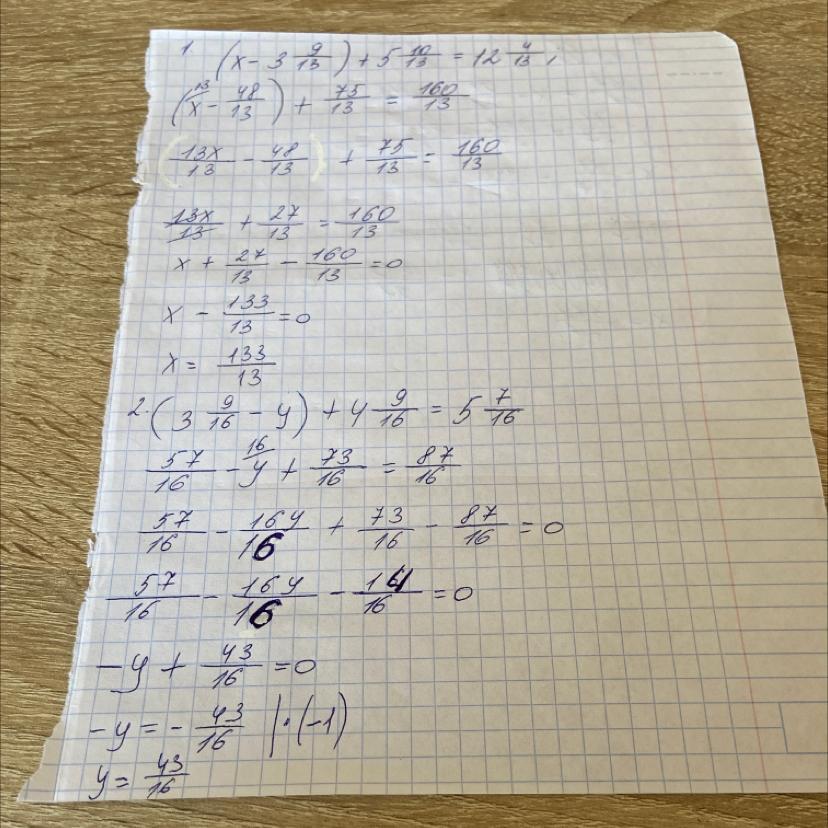 1 (x - 3 9/13) + 5 10/13 = 12 4/13;
(x^13 - 48/13) + 75/13 = 160/13
(13x/13 - 48/13) + 75/13 = 160/13
13x/13 + 27/13 = 160/13
x + 27/13 - 160/13 = 0
x - 133/13 = 0
x = 133/13
2. (3 9/16 - y) + 4 9/16 = 5 7/16
57/16 - y^16 + 73/16 = 87/16
57/16 - 16y/16 + 73/16 - 87/16 = 0
57/16 - 16y/16 - 14/16 = 0
-y + 43/16 = 0
-y = - 43/16 | · (-1)
y = 43/16